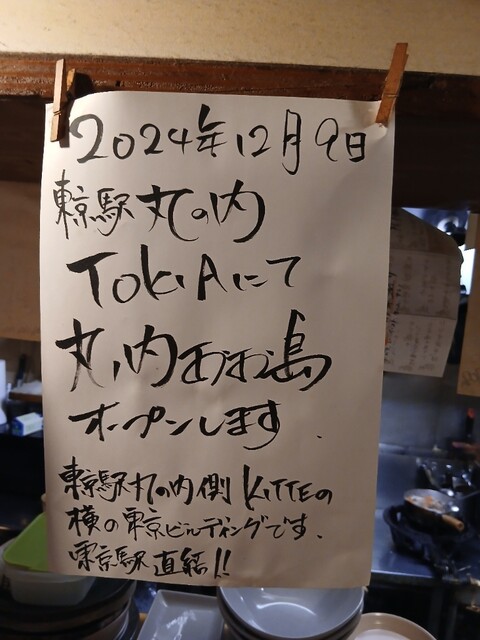 2024年12月9日
東京駅丸の内
TOKIAにて
丸ノ内あお島
オープンします.
東京駅丸の内側KITTEの
横の東京ビルディングです.
東京駅直結!!